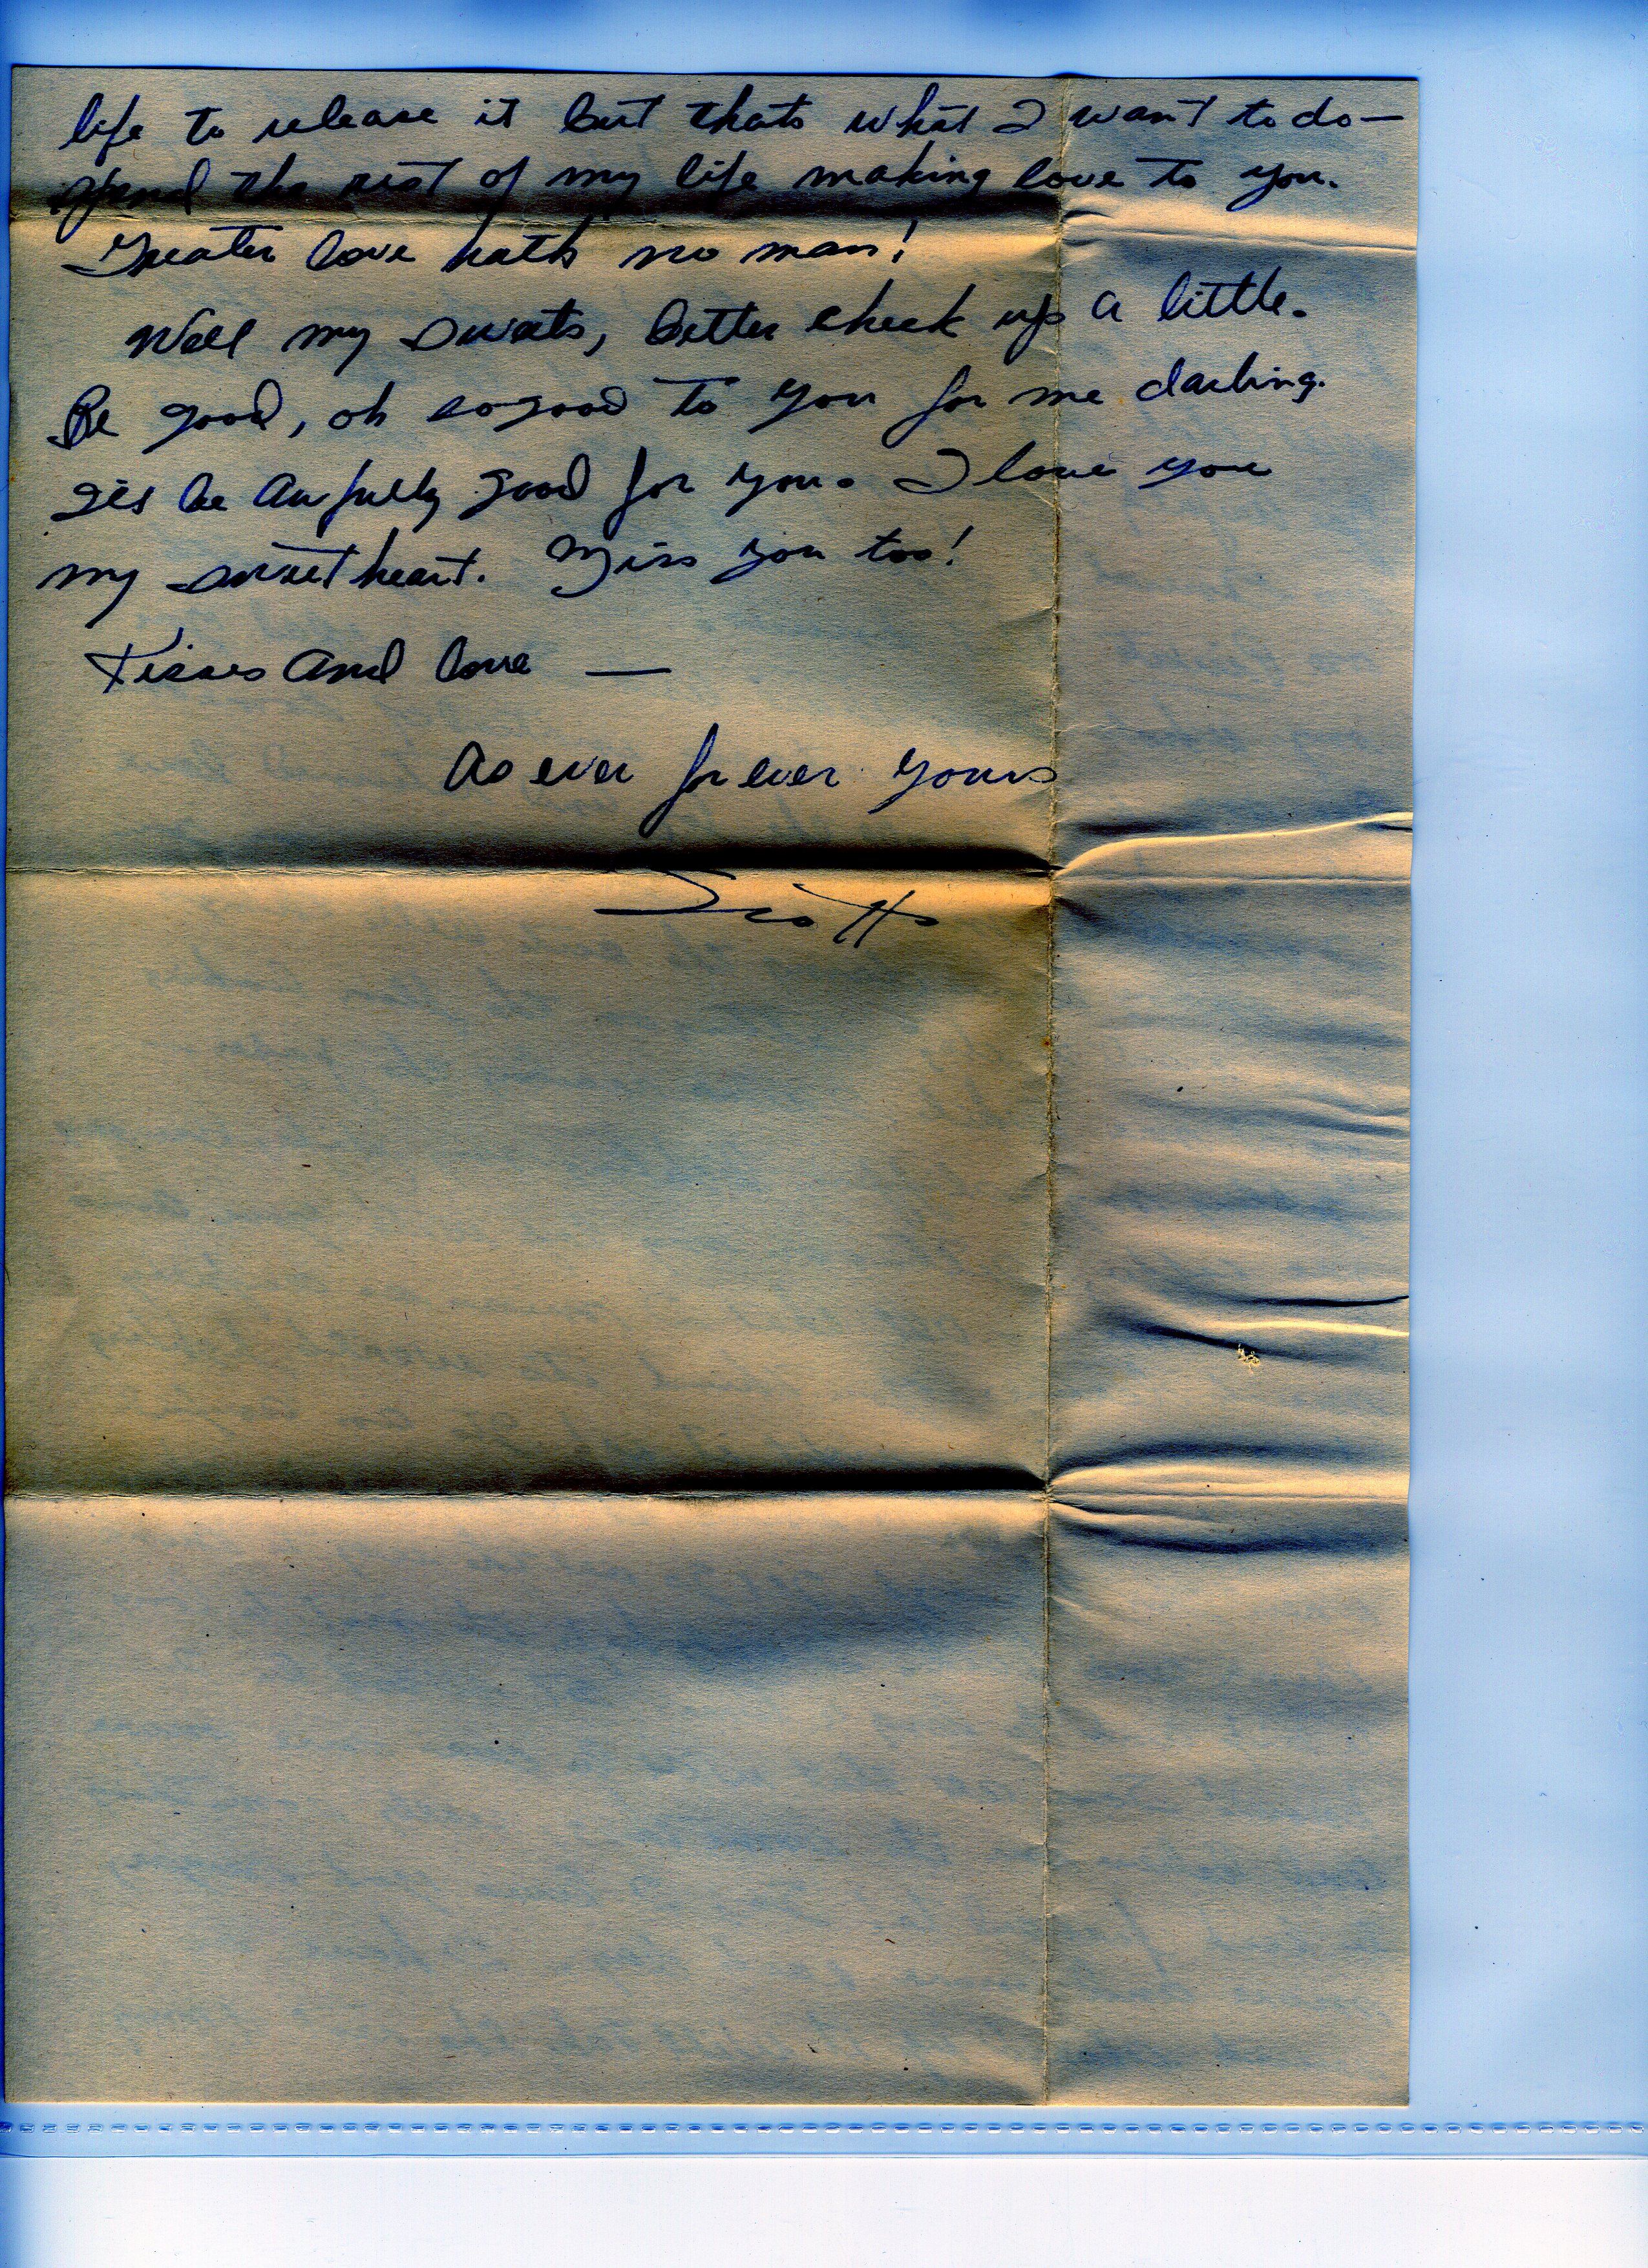 life to release it but thats what I want to do—
spend the rest of my life making love to you.
Greater love hath no man!
Well my sweets, better check up a little.
Be good, oh so good to you for me darling.
I'll be awfully good for you. I love you
my sweetheart. Miss you too!
Kisses and love —
As ever forever yours
Scott